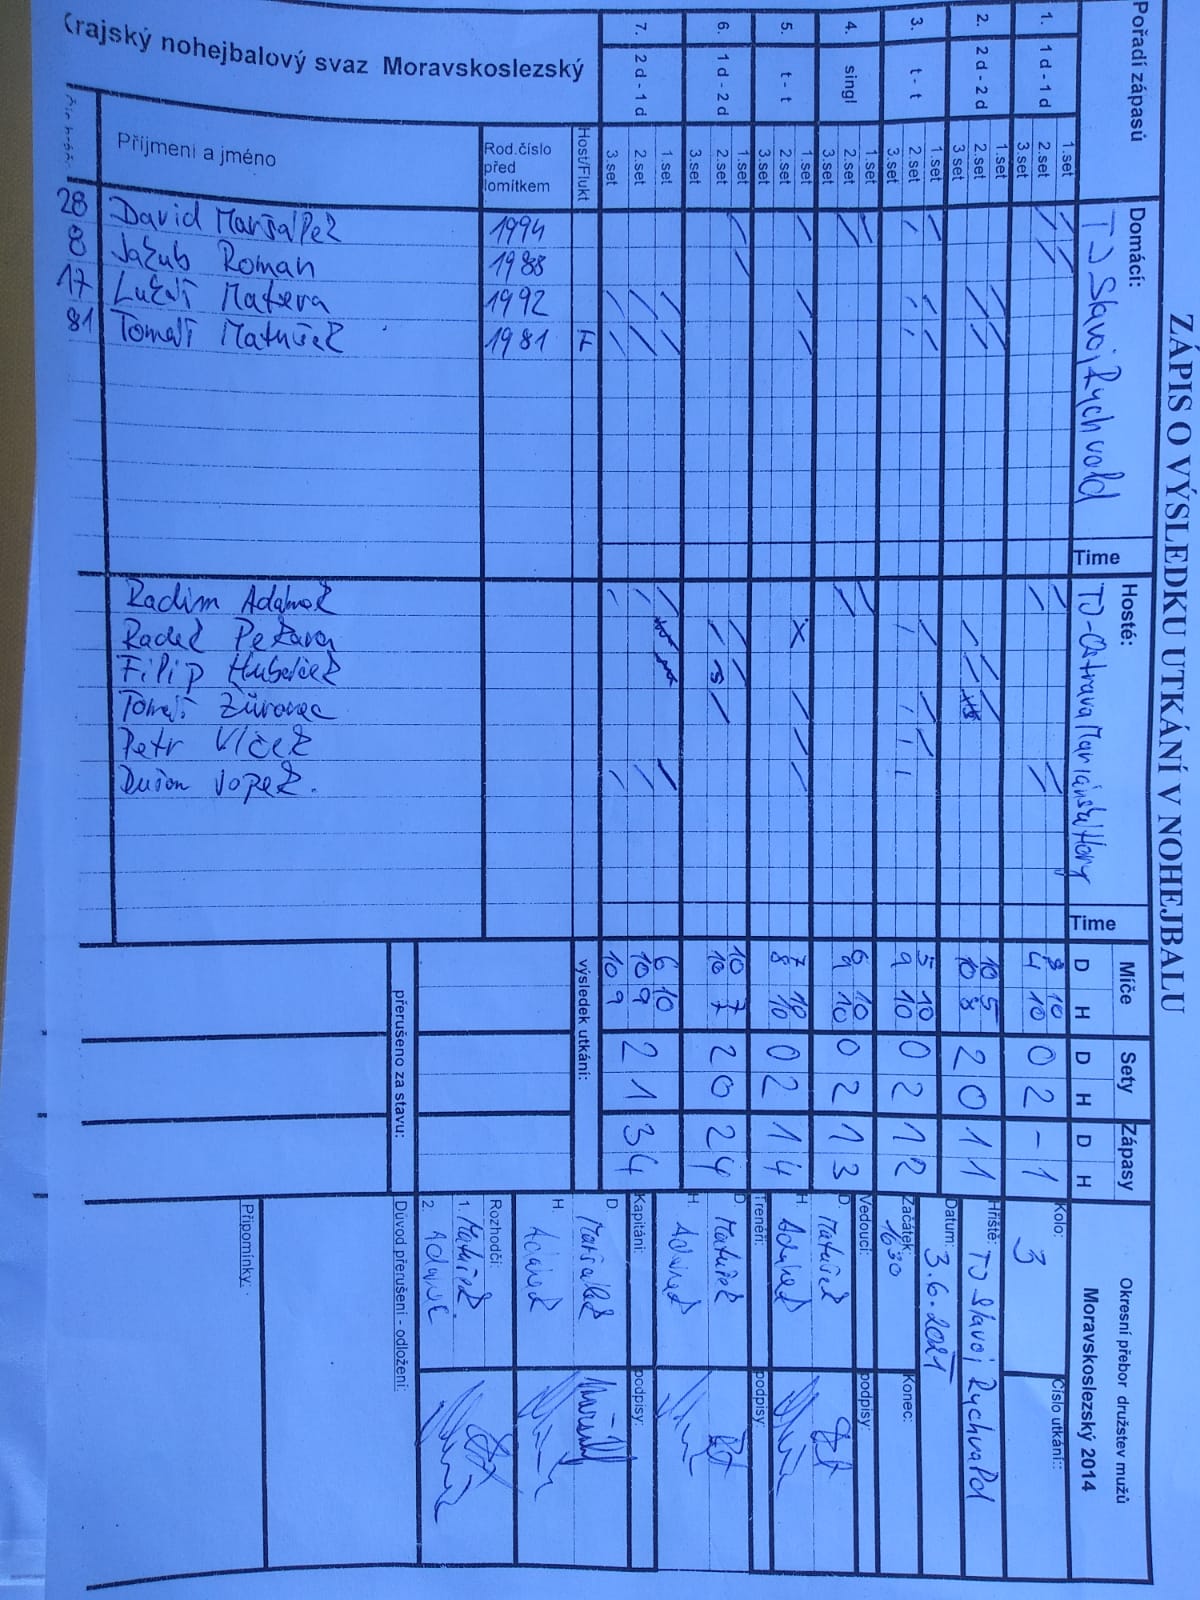 ZÁPIS O VÝSLEDKU UTKÁNÍ V NOHEJBALU
Krajský nohejbalový svaz Moravskoslezský
Okresní přebor družstev mužů
Moravskoslezský 2014
Pořadí zápasů
Domácí:
TJ Slavoj Rychvald
Time
Hosté:
TJ-Ostrava Mariánské Hory
Time
Míče Sety Zápasy
D H D H D H
1. 1 d - 1 d 1.set 2.set 3.set
10
4 10
0 2 - 1
2. 2 d - 2 d 1.set 2.set 3 set
10 5
10 8
2 0 1 1
3. t - t 1.set 2 set 3.set
5 10
9 10
0 2 1 2
4. singl 1.set 2.set 3.set
6 10
9 10
0 2 1 3
5. t - t 1.set 2.set 3.set
7 10
8 10
0 2 1 4
6. 1 d - 2 d 1.set 2.set 3.set
10 7
10 7
2 0 2 4
7. 2 d - 1 d 1.set 2.set 3.set
6 10
10 9
10 9
2 1 3 4
Příjmení a jméno
Rod.číslo před lomítkem
Host/Flukt
28 David Maršálek 1994
8 Jakub Roman 1988
17 Lukáš Matera 1992
81 Tomáš Matušek 1981 F
Radim Adámek
Radek Pekara
Filip
Tomáš
Petr Vlček
Dušan
výsledek utkání:
přerušeno za stavu:
Kolo: 3
Číslo utkání::
Hřiště: TJ Slavoj Rychvald
Datum: 3.6.2021
Začátek: 16 30
Konec:
Vedoucí: podpisy:
D. Matušek
H. Adámek
Trenéři: podpisy:
D. Matušek
H. Adámek
Kapitáni: podpisy:
D Maršálek
H. Adámek
Rozhodčí:
1. Matušek
2. Adámek
Důvod přerušení - odložení:
Připomínky: